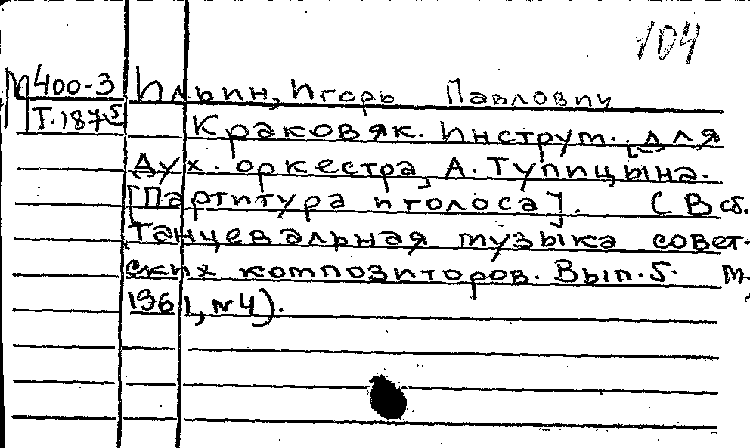 104
М 400-3 Ильин, Игорь Павлович
Т.187⁵ Краковяк. Инструм. [для
дух. оркестра] А. Тупицына.
[Партитура и голоса]. (В сб.
Танцевальная музыка совет-
ских композиторов. Вып. 5. М.,
1961, №4).